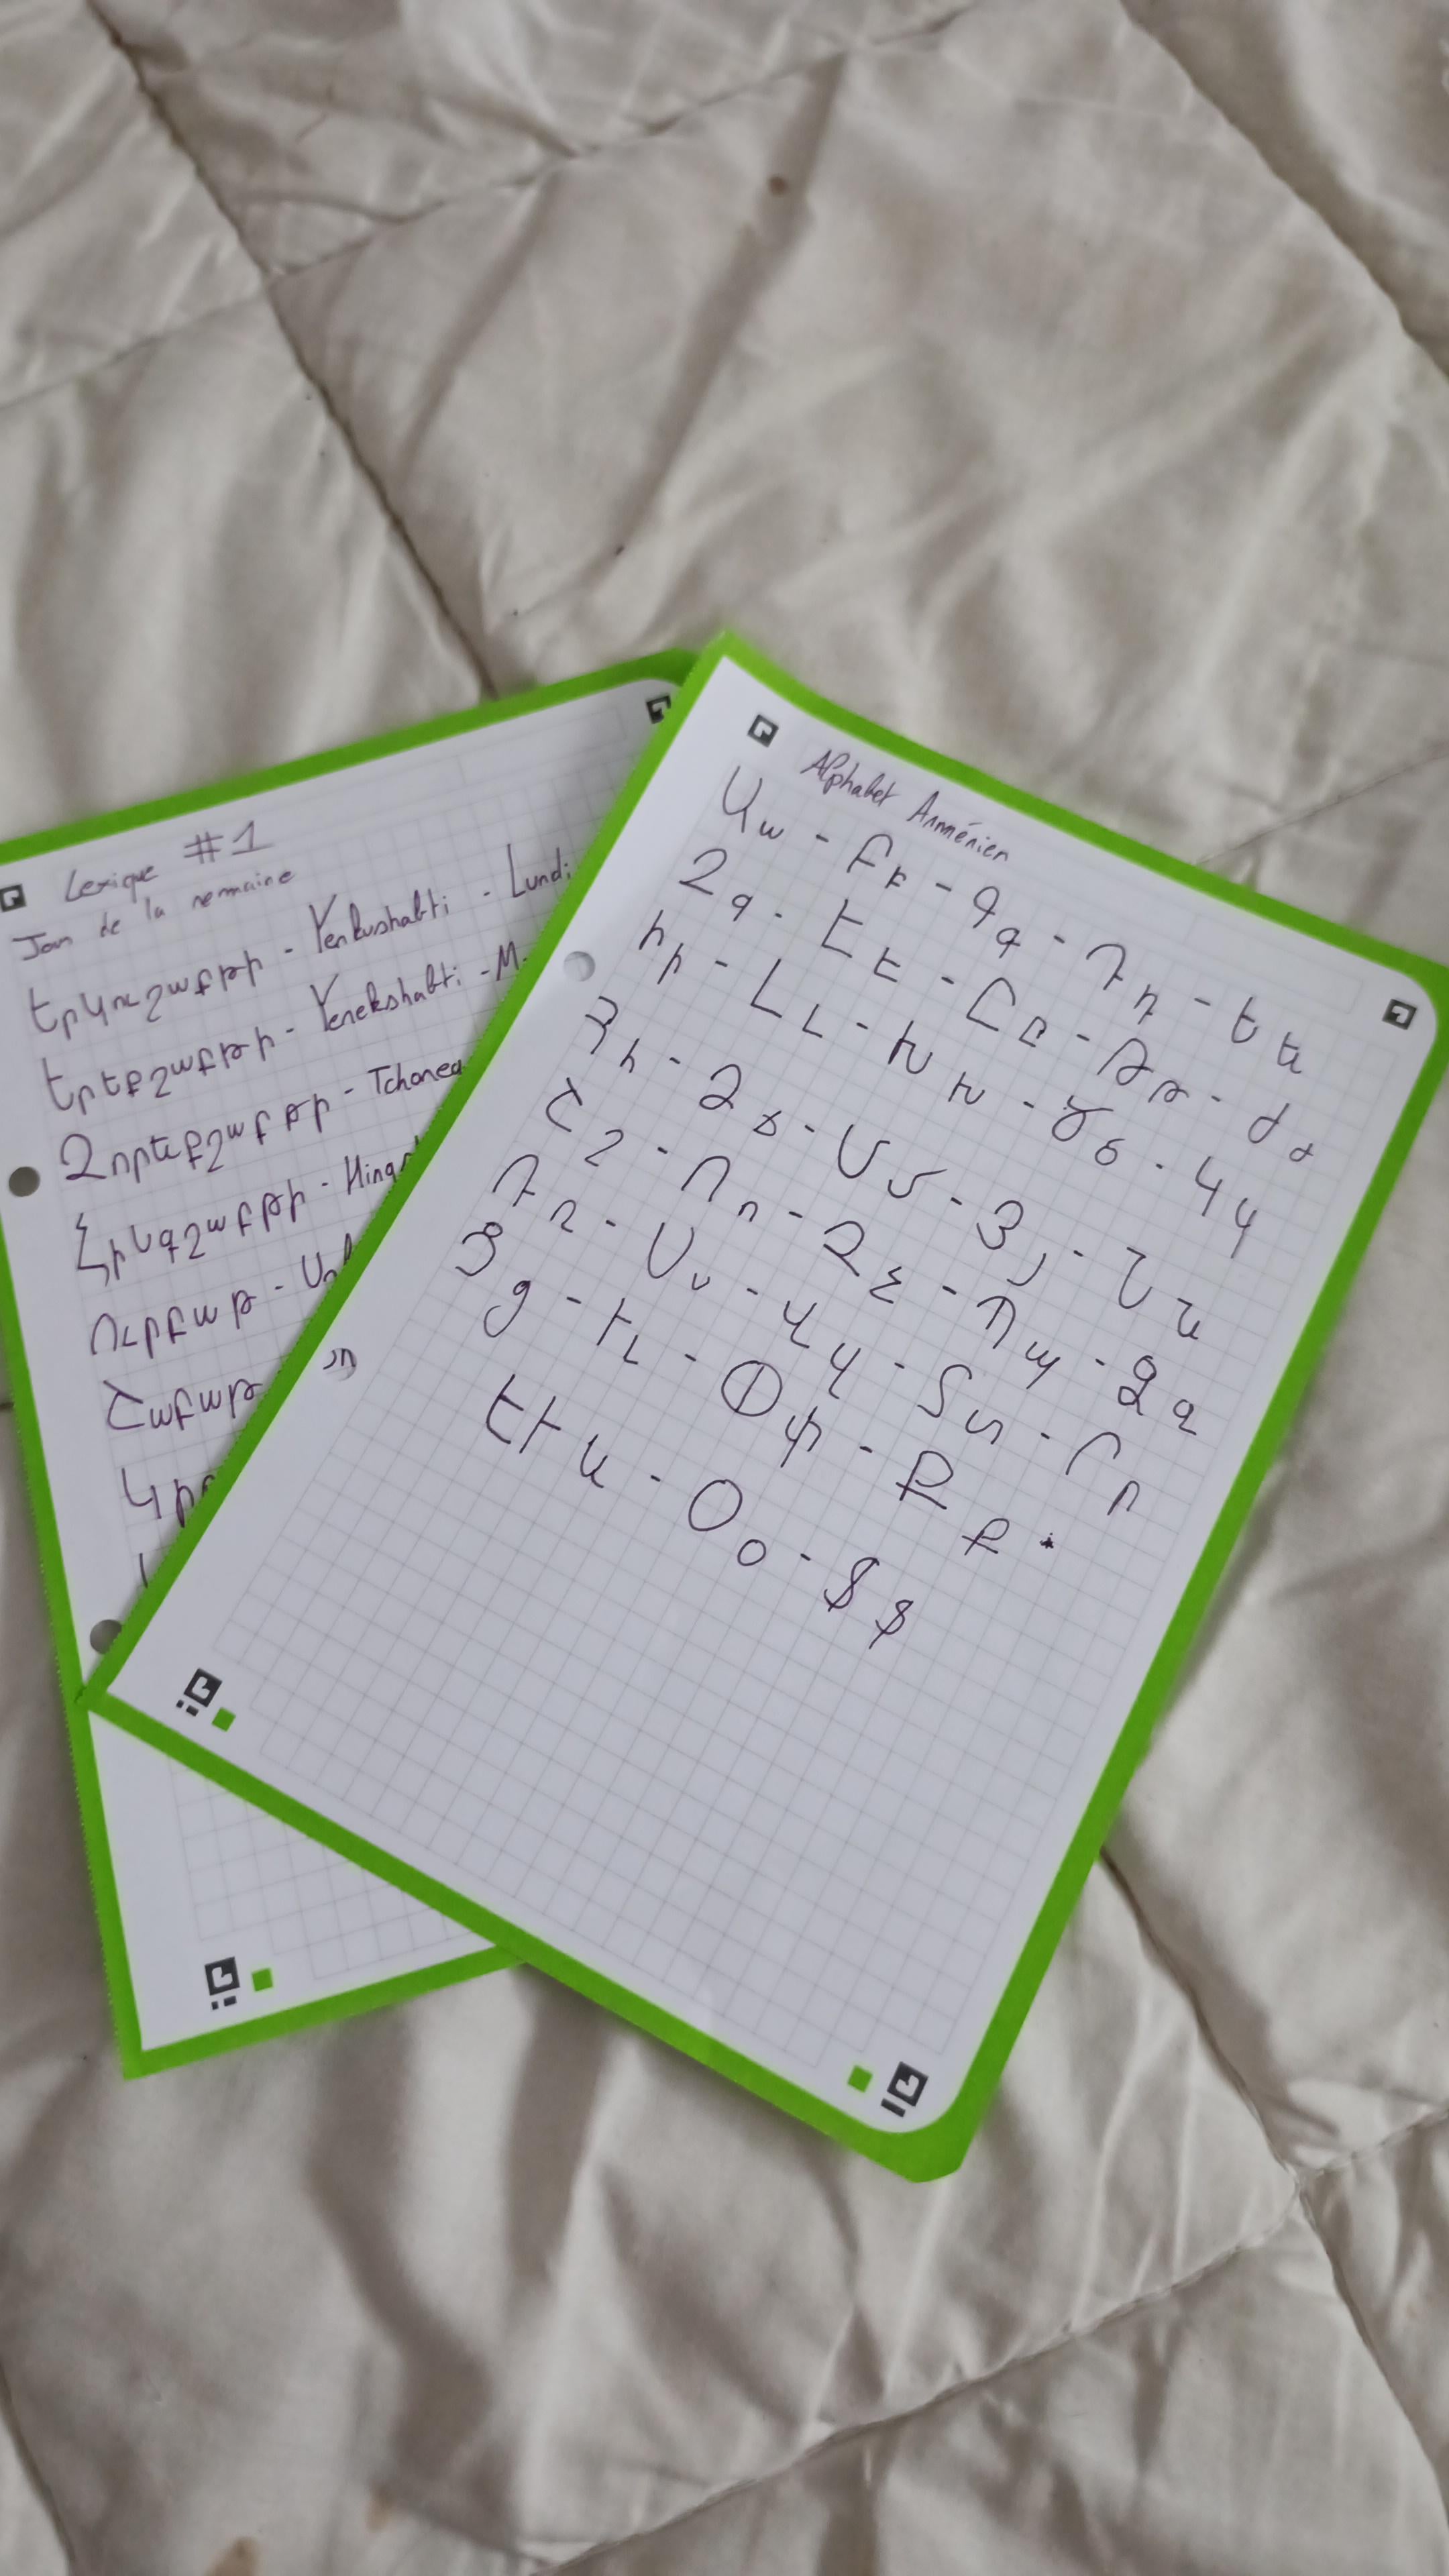 Lexique #1
Jour de la semaine
Երկուշաբթի - Yerkushabti - Lundi
Երեքշաբթի - Yerekshabti - M
Չորեքշաբթի - Tchorea
Հինգշաբթի - Hing
Ուրբաթ - Ur
Շաբաթ
Կիր
Alphabet Arménien
Աա - Բբ - Գգ - Դդ - Եե
Զզ - Էէ - Ըը - Թթ - Ժժ
Իի - Լլ - Խխ - Ծծ - Կկ
Հհ - Ձձ - Ղղ - Ճճ - Մմ - Յյ - Նն
Շշ - Ոո - Չչ - Պպ - Ջջ
Ռռ - Սս - Վվ - Տտ - Րր
Ցց - Ււ - Փփ - Քք -
ԵՒ և - Օօ - Ֆֆ